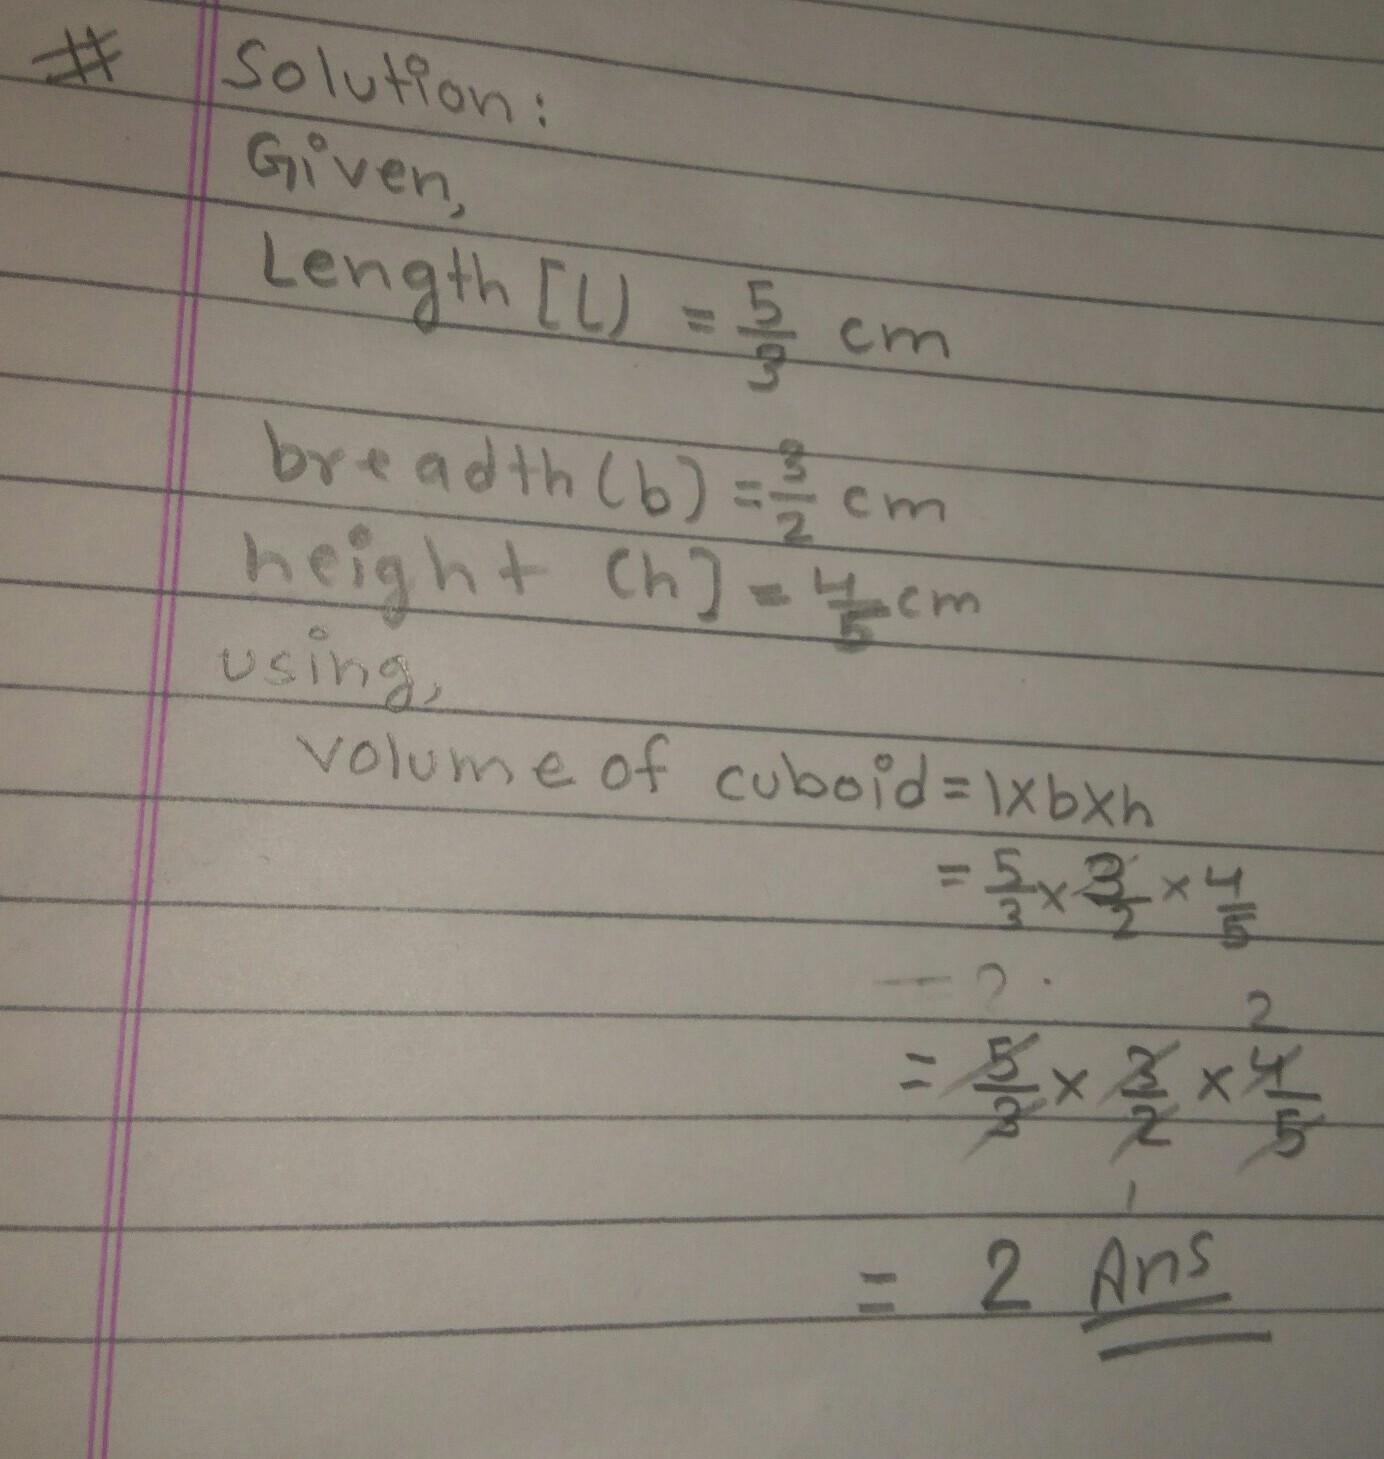 # Solution:
Given,
Length [L) = 5/3 cm
breadth (b) = 3/2 cm
height (h] = 4/5 cm
using,
volume of cuboid = l×b×h
= 5/3 × 3/2 × 4/5
2
= 5/3 × 3/2 × 4/5
1
= 2 Ans